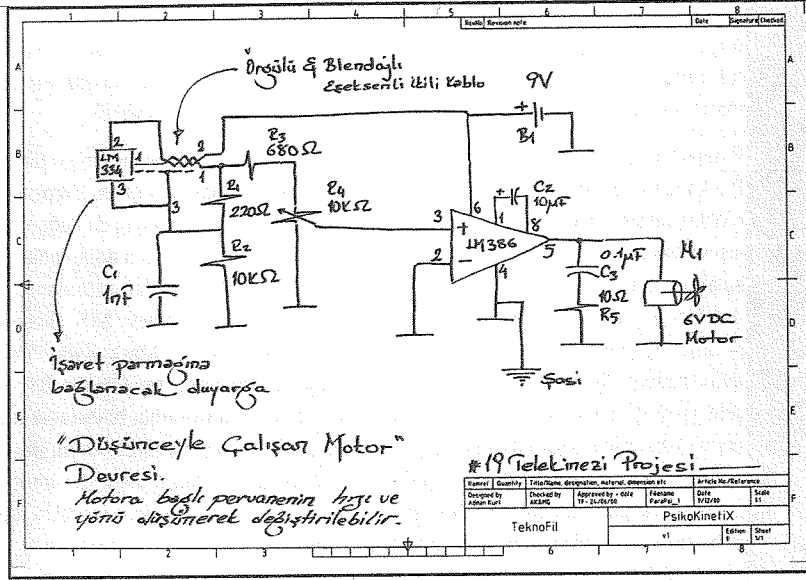 1 2 3 4 5 6 7 8
RevNo Revision note Date Signature Checked
A
B
C
D
E
F
Örgülü & Blendajlı
Eşeksenli ikili Kablo
9V
+
B1
2
LM
334
1
3
2
1
3
R3
680Ω
R1
220Ω
R4
10KΩ
R2
10KΩ
C1
1nF
3
2
+
-
LM386
6
1
8
4
5
+
C2
10µF
0.1µF
C3
10Ω
R5
M1
6VDC
Motor
Şasi
İşaret parmağına
bağlanacak duyarga
"Düşünceyle Çalışan Motor"
Devresi.
Motora bağlı pervanenin hızı ve
yönü düşünerek değiştirilebilir.
#19 Telekinezi Projesi
Itemref Quantity Title/Name, designation, material, dimension etc Article No./Reference
Designed by Checked by Approved by - date Filename Date Scale
Adnan Kurt AKAMG TF - 24/06/00 ParaPsi_1 9/12/00 1:1
TeknoFil
PsikoKinetiX
v1
Edition Sheet
0 1/1
1 2 3 6 7 8
A
B
C
D
E
F